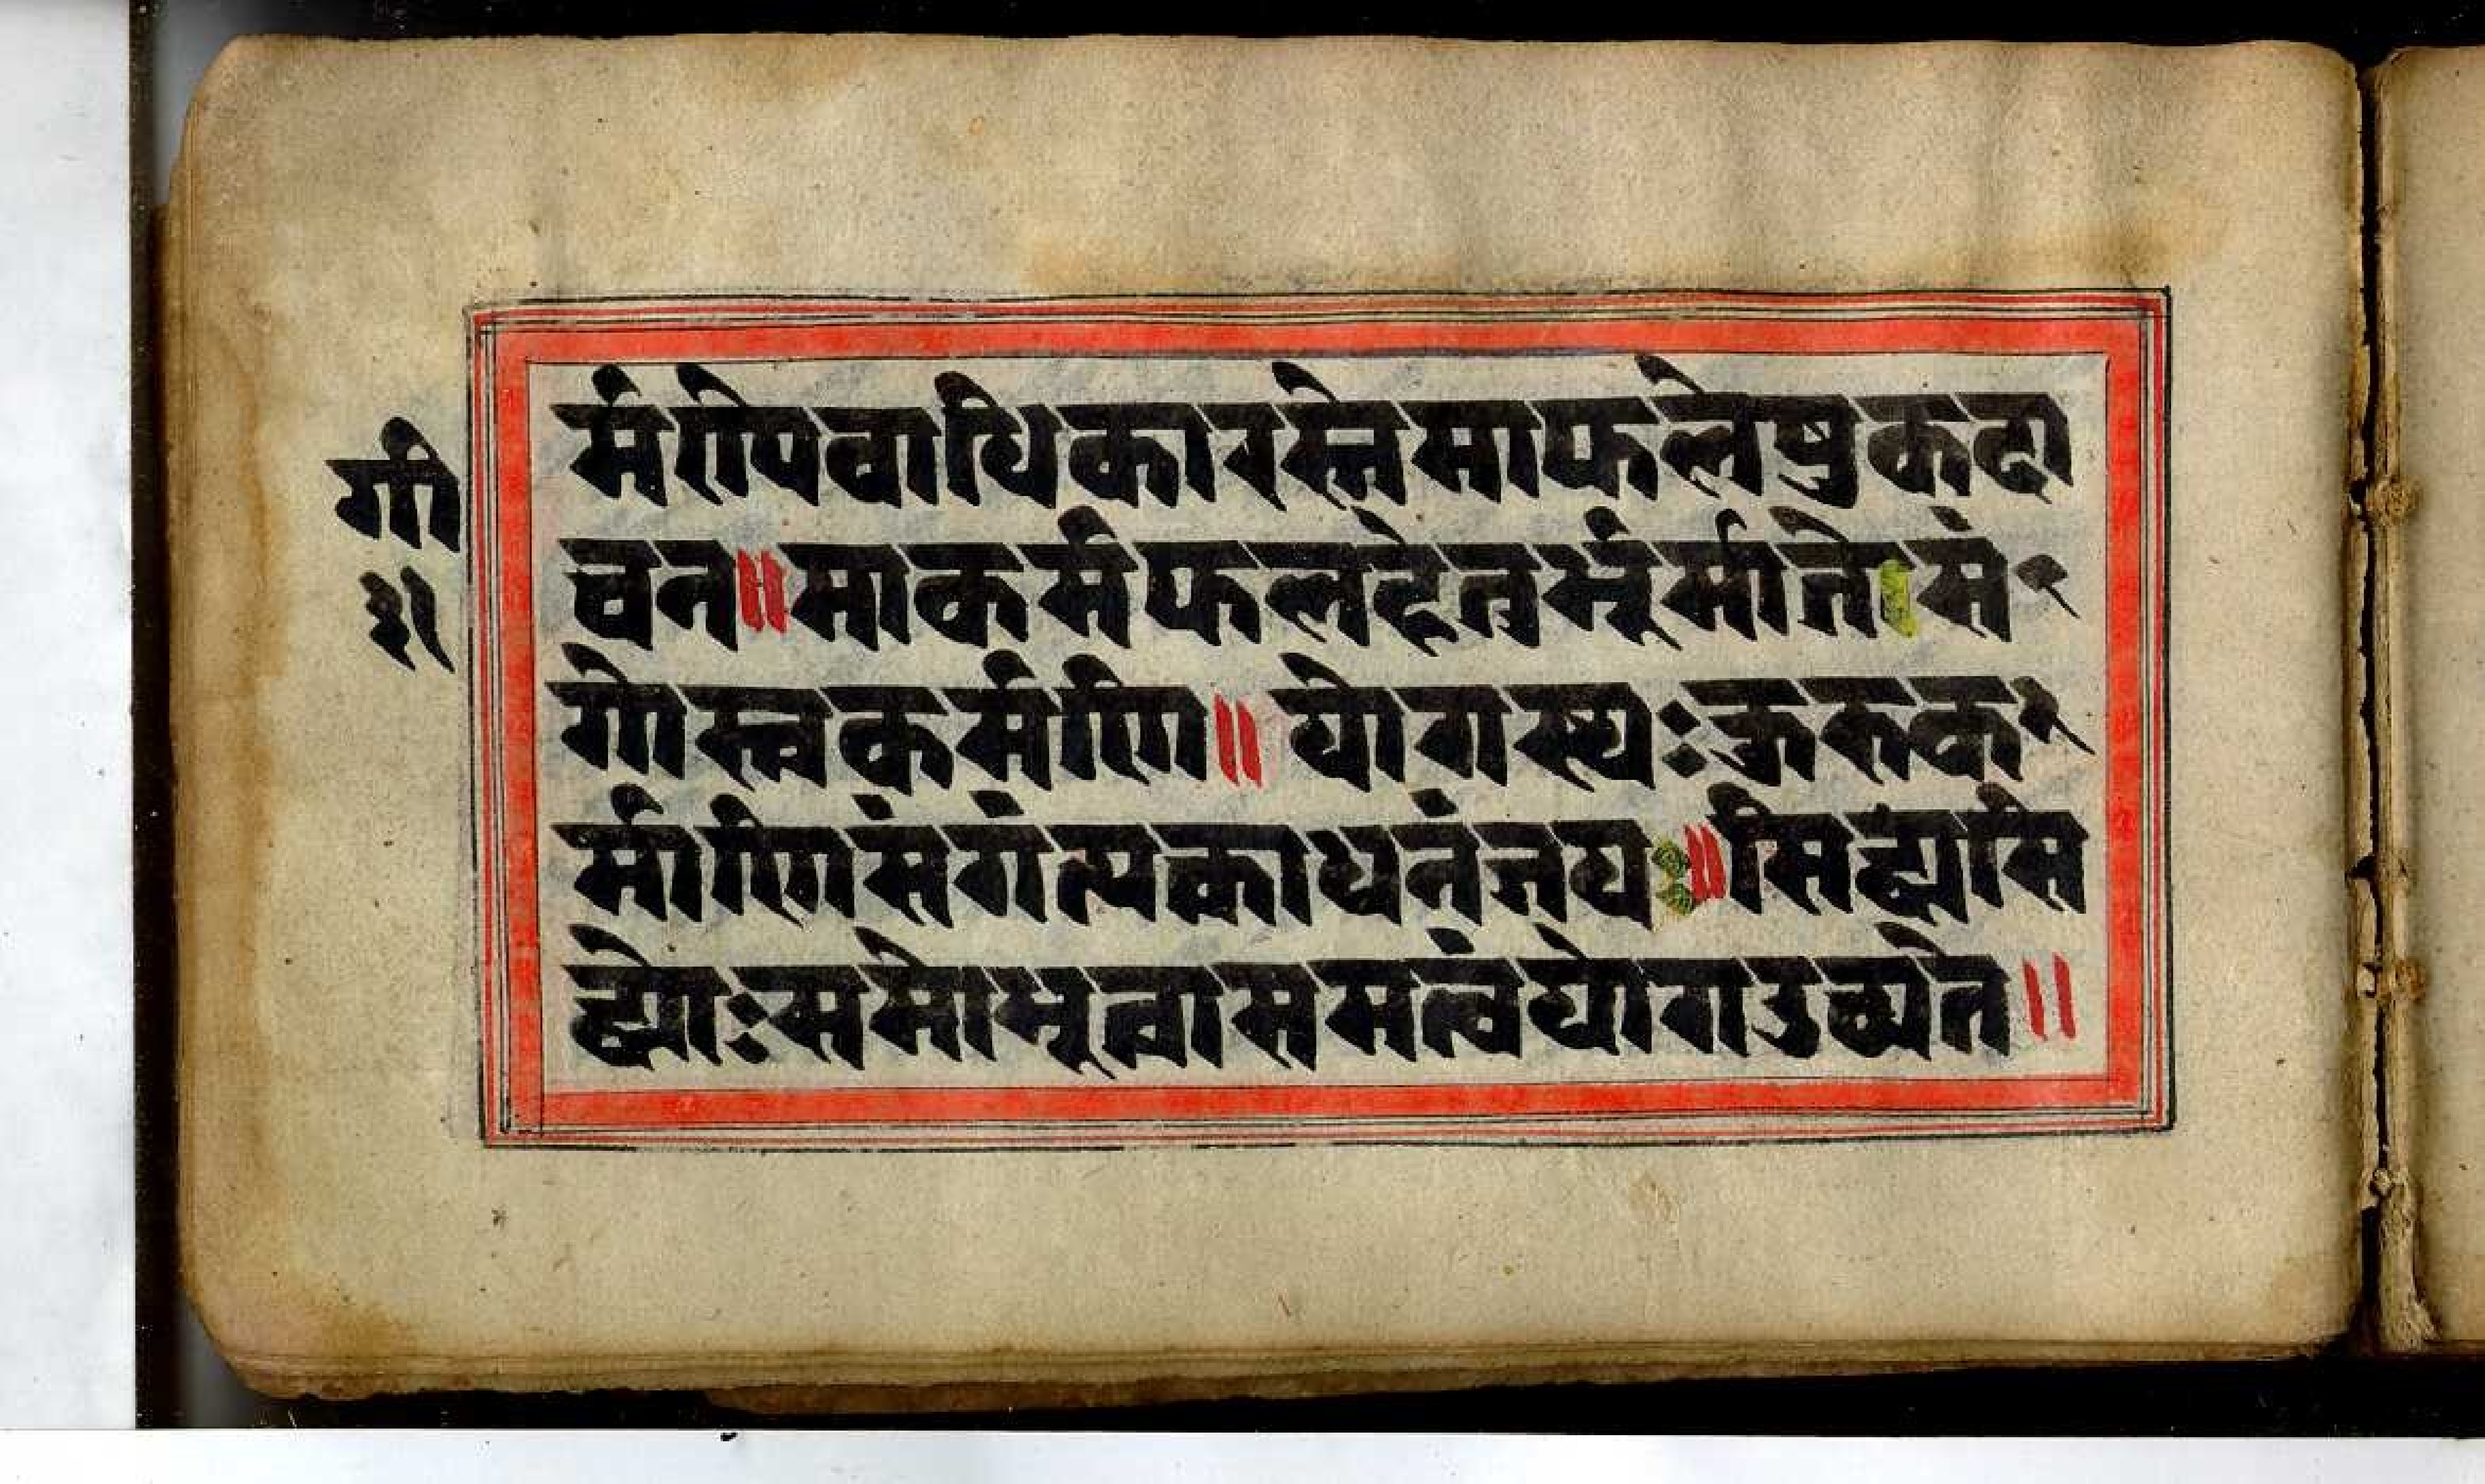 गी
३१
र्मरोपवाधिकारस्ते माफलेषुकदा
चन॥माकर्मफलहेतुर्भूर्माते सं
गोस्त्वकर्मणि॥योगस्थः कुरुक
र्माणिसंगंत्यक्त्वाधनंजय॥सिद्ध्यसि
द्ध्योःसमोभूत्वासमत्वंयोगउच्यते॥